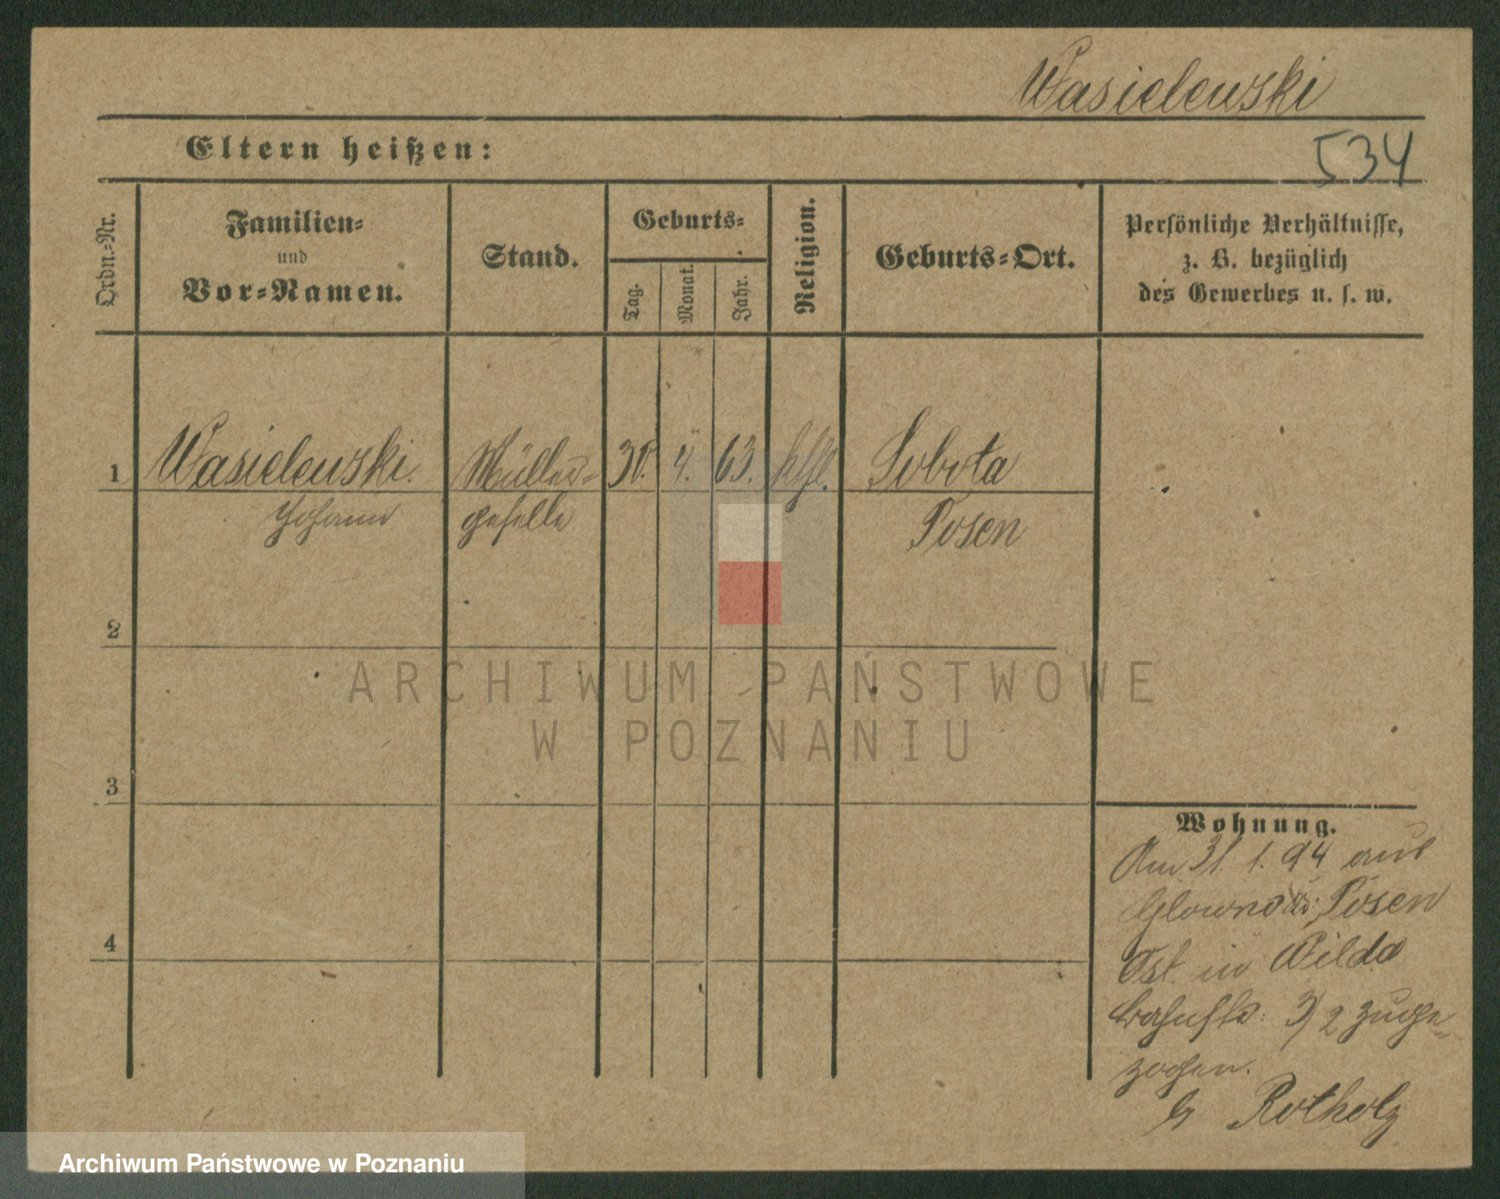 Wasielewski
Eltern heißen:
534
Ordn.-Nr.
Familien-
und
Vor-Namen.
Stand.
Geburts-
Tag.
Monat.
Jahr.
Religion.
Geburts-Ort.
Persönliche Verhältnisse,
z. B. bezüglich
des Gewerbes u. s. w.
1 Wasielewski. Müller- 30. 4. 63. kthl. Sobota
Johann geselle Posen
2
3
4
Wohnung.
Am 31. 1. 94 aus
Glowno Posen
Ost. in Wilda
3/2 zuge-
zogen.
b/ Rotholz
ARCHIWUM PAŃSTWOWE
W POZNANIU
Archiwum Państwowe w Poznaniu